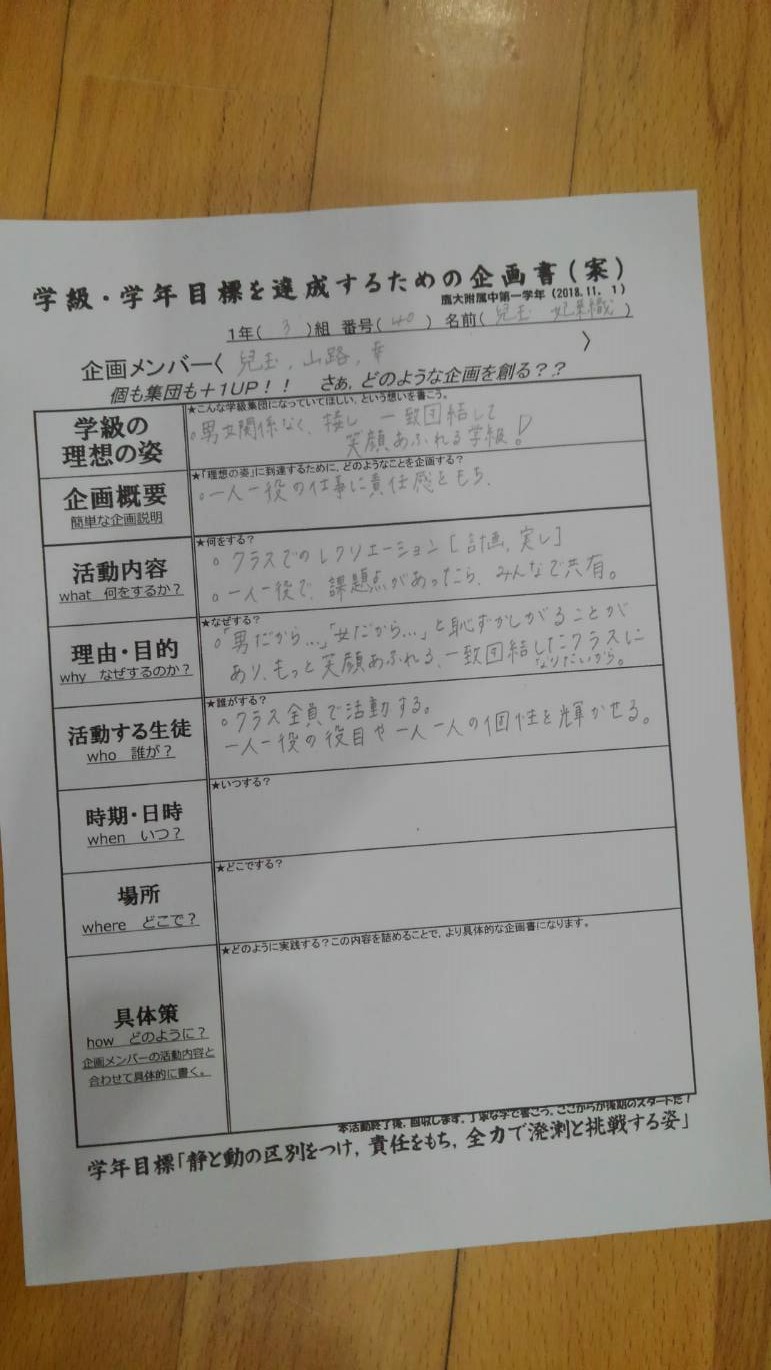 学級・学年目標を達成するための企画書(案)
鷹大附属中第一学年(2018.11. 1)
1年( 3 )組 番号( 40 ) 名前( 兒玉 妃果織 )
企画メンバー〈 兒玉, 山路, 幸 〉
個も集団も+1UP!! さぁ,どのような企画を創る??
学級の
理想の姿
★こんな学級集団になっていてほしい,という想いを書こう。
○男女関係なく、接し 一致団結して
笑顔あふれる学級!
企画概要
簡単な企画説明
★「理想の姿」に到達するために,どのようなことを企画する?
○一人一役の仕事に責任感をもち、
活動内容
what 何をするか?
★何をする?
○ クラスでのレクリエーション[計画,実し]
○ 一人一役で、課題点があったら、みんなで共有。
理由・目的
why なぜするのか?
★なぜする?
○「男だから…」「女だから…」と恥ずかしがることが
あり、もっと笑顔あふれる、一致団結したクラスに
なりたいから。
活動する生徒
who 誰が?
★誰がする?
○クラス全員で活動する。
一人一役の役目や一人一人の個性を輝かせる。
時期・日時
when いつ?
★いつする?
場所
where どこで?
★どこでする?
具体策
how どのように?
企画メンバーの活動内容と
合わせて具体的に書く。
★どのように実践する?この内容を詰めることで,より具体的な企画書になります。
本活動終了後,回収します。丁寧な字で書こう。ここからが後期のスタートだ!
学年目標「静と動の区別をつけ,責任をもち,全力で溌溂と挑戦する姿」